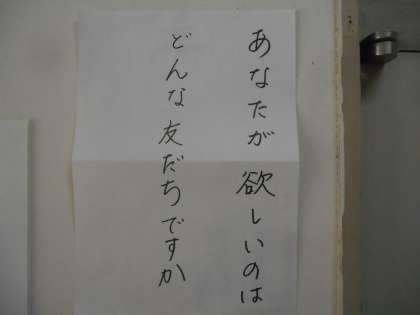 あなたが欲しいのは
どんな友だちですか